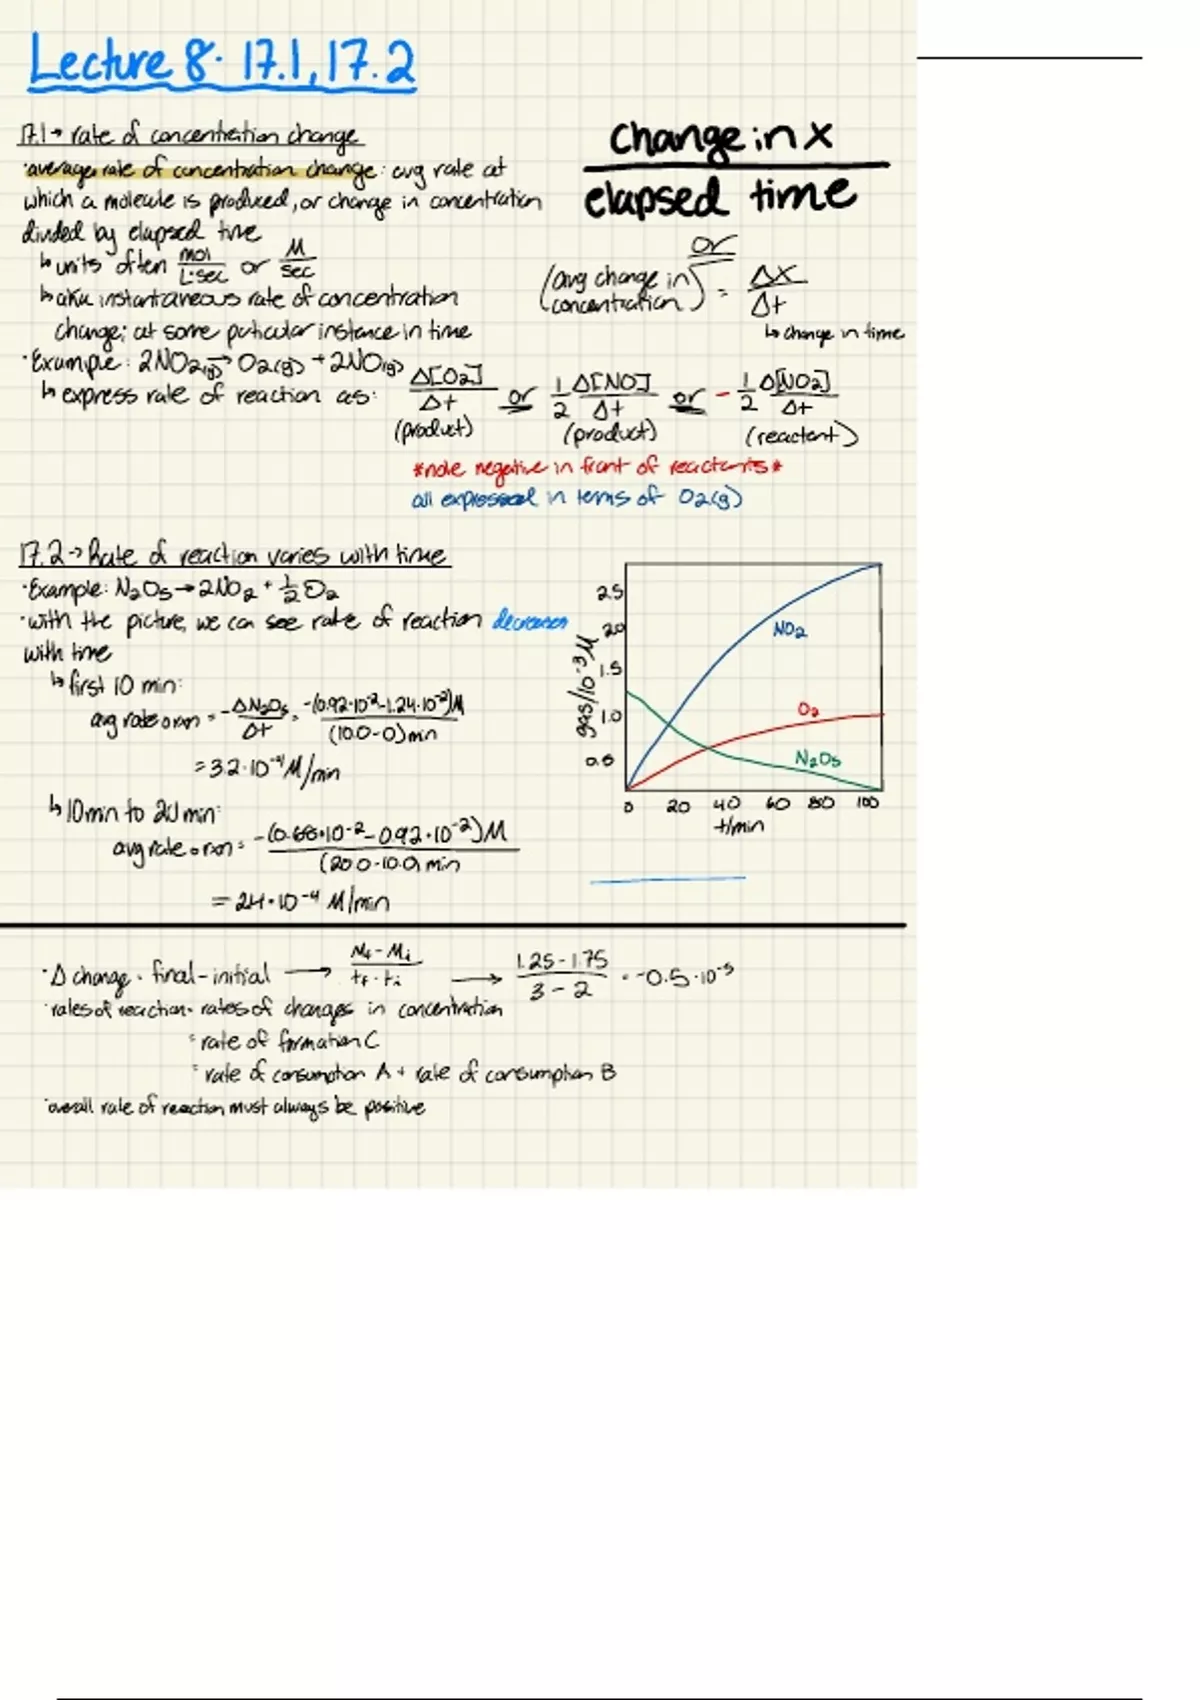 Lecture 8: 17.1, 17.2
17.1→ rate of concentration change
·average rate of concentration change: avg rate at
which a molecule is produced, or change in concentration
divided by elapsed time
↳units often mol/L·sec or M/sec
↳aka instantaneous rate of concentration
change; at some paticular instance in time
change in x
elapsed time
or
(avg change in concentration) = ΔX/Δt
↳change in time
·Example: 2NO2(g)→O2(g) + 2NO(g)
↳express rate of reaction as: Δ[O2]/Δt or 1/2 Δ[NO]/Δt or -1/2 Δ[NO2]/Δt
(product) (product) (reactant)
*note negative in front of reactants*
all expressed in terms of O2(g)
17.2→Rate of reaction varies with time
·Example: N2O5→2NO2 + 1/2 O2
·with the picture, we can see rate of reaction decreases
with time
↳first 10 min:
avg rate o rxn = -ΔN2O5/Δt = -(0.92·10-2-1.24·10-2)M/(10.0-0)min
=3.2·10-4 M/min
↳10min to 20 min:
avg rate o rxn = -(0.68·10-2-0.92·10-2)M/(20.0-10.0) min
= 2.4·10-4 M/min
gas/10-3 M
2.5
2.0
1.5
1.0
0.5
NO2
O2
N2O5
0 20 40 60 80 100
t/min
·Δ change = final-initial → Mf-Mi/tf-ti → 1.25-1.75/3-2 = -0.5·10-3
·rates of reaction= rates of changes in concentration
=rate of formation C
=rate of consumption A + rate of consumption B
·overall rate of reaction must always be positive